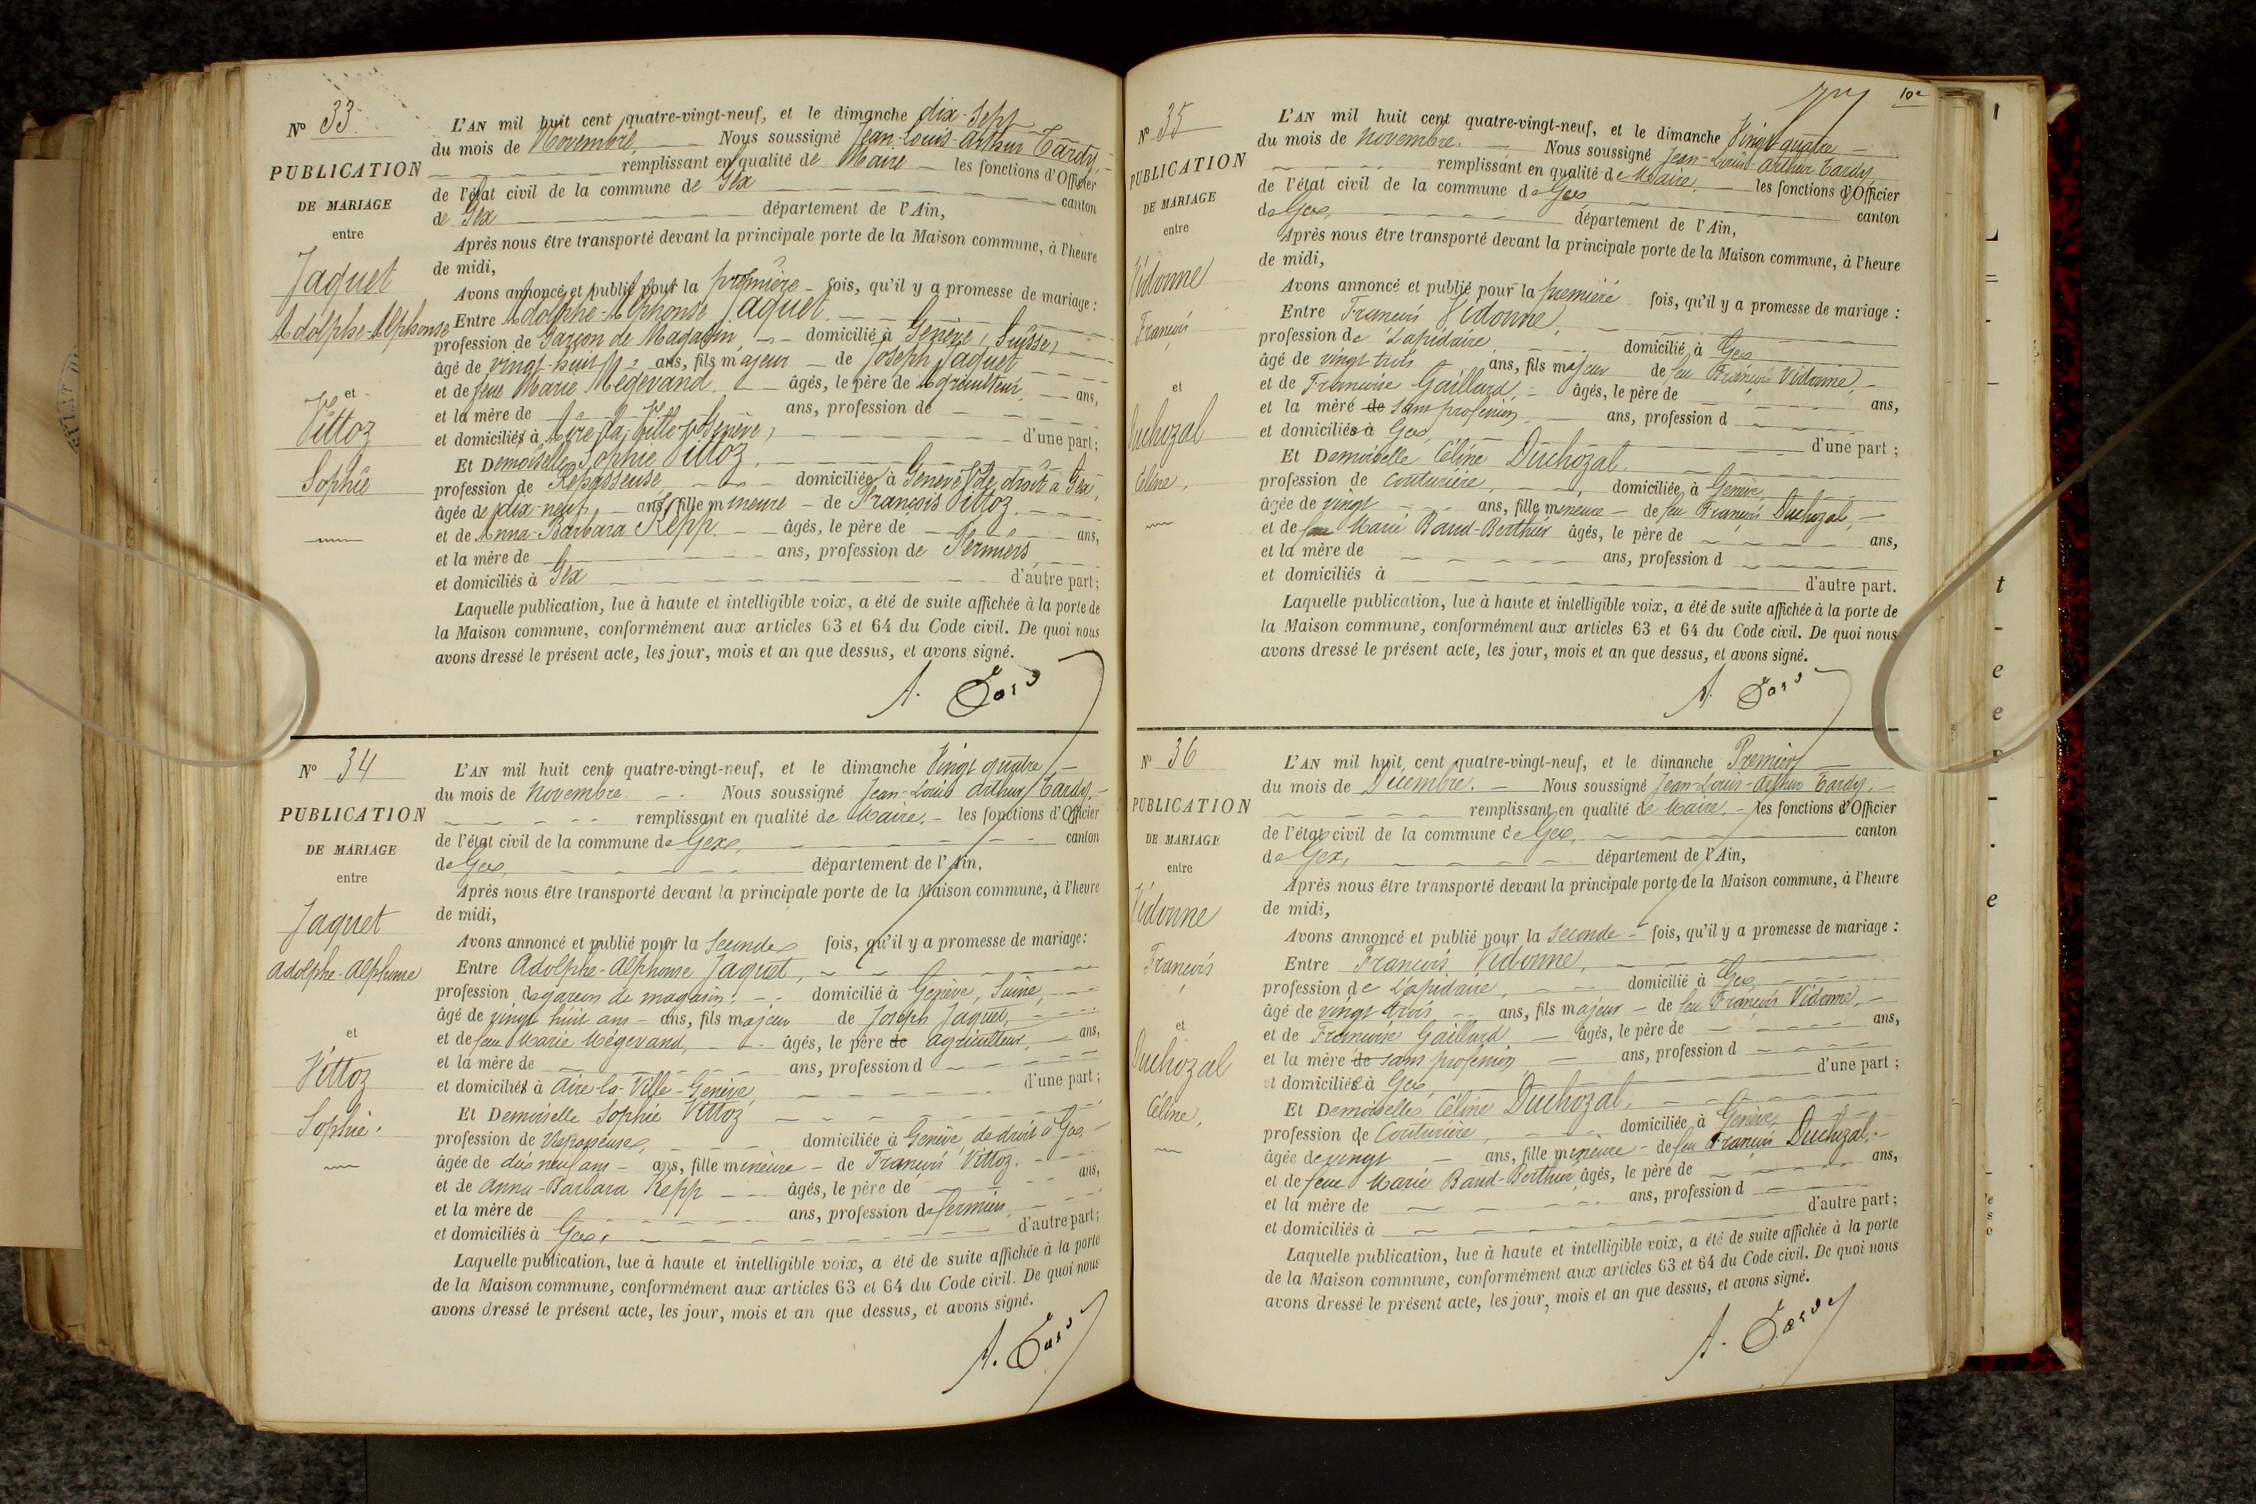 N° 33
PUBLICATION
DE MARIAGE
entre
Jaquet
Adolphe-Alphonse
et
Vittoz
Sophie
L'AN mil huit cent quatre-vingt-neuf, et le dimanche dix-sept
du mois de Novembre. Nous soussigné Jean-Louis-Arthur Tardy,
remplissant en qualité de Maire les fonctions d'Officier
de l'état civil de la commune de Gex canton
de Gex département de l'Ain,
Après nous être transporté devant la principale porte de la Maison commune, à l'heure
de midi,
Avons annoncé et publié pour la première fois, qu'il y a promesse de mariage :
Entre Adolphe-Alphonse Jaquet
profession de Garçon de Magasin, domicilié à Genève (Suisse)
âgé de vingt-huit ans, fils majeur de Joseph Jaquet
et de feue Marie Mégevand. âgés, le père de Agriculteur, ans,
et la mère de ans, profession de
et domiciliés à Aire-la-Ville (Genève) d'une part ;
Et Demoiselle Sophie Vittoz.
profession de Repasseuse domiciliée à Genève, de droit à Gex,
âgée de dix-neuf ans, fille mineure de François Vittoz.
et de Anna-Barbara Kepp. âgés, le père de ans,
et la mère de ans, profession de Fermiers,
et domiciliés à Gex d'autre part ;
Laquelle publication, lue à haute et intelligible voix, a été de suite affichée à la porte de
la Maison commune, conformément aux articles 63 et 64 du Code civil. De quoi nous
avons dressé le présent acte, les jour, mois et an que dessus, et avons signé.
A. Tardy
N° 34
PUBLICATION
DE MARIAGE
entre
Jaquet
Adolphe-Alphonse
et
Vittoz
Sophie.
L'AN mil huit cent quatre-vingt-neuf, et le dimanche Vingt quatre
du mois de Novembre Nous soussigné Jean-Louis Arthur Tardy.
remplissant en qualité de Maire. les fonctions d'Officier
de l'état civil de la commune de Gex, canton
de Gex, département de l'Ain,
Après nous être transporté devant la principale porte de la Maison commune, à l'heure
de midi,
Avons annoncé et publié pour la Seconde fois, qu'il y a promesse de mariage :
Entre Adolphe-Alphonse Jaquet,
profession de garçon de magasin, domicilié à Genève, Suisse,
âgé de vingt huit ans ans, fils majeur de Joseph Jaquet,
et de feue Marie Mégevand, âgés, le père de agriculteur, ans,
et la mère de ans, profession d
et domiciliés à Aire-la-Ville-Genève, d'une part ;
Et Demoiselle Sophie Vittoz
profession de Repasseuse, domiciliée à Genève, de droit à Gex,
âgée de dix neuf ans ans, fille mineure de François Vittoz.
et de Anna-Barbara Kepp âgés, le père de ans,
et la mère de ans, profession de fermiers,
et domiciliés à Gex, d'autre part ;
Laquelle publication, lue à haute et intelligible voix, a été de suite affichée à la porte
de la Maison commune, conformément aux articles 63 et 64 du Code civil. De quoi nous
avons dressé le présent acte, les jour, mois et an que dessus, et avons signé.
A. Tardy
10e
N° 35
PUBLICATION
DE MARIAGE
entre
Vidonne
François
et
Duchozal
Céline,
L'AN mil huit cent quatre-vingt-neuf, et le dimanche Vingt quatre
du mois de novembre. Nous soussigné Jean-Louis-Arthur Tardy,
remplissant en qualité de Maire. les fonctions d'Officier
de l'état civil de la commune de Gex canton
de Gex, département de l'Ain,
Après nous être transporté devant la principale porte de la Maison commune, à l'heure
de midi,
Avons annoncé et publié pour la première fois, qu'il y a promesse de mariage :
Entre François Vidonne,
profession de Lapidaire domicilié à Gex
âgé de vingt trois ans, fils majeur de feu François Vidonne,
et de Françoise Gaillard, âgés, le père de ans,
et la mère de sans profession ans, profession d
et domiciliés à Gex d'une part ;
Et Demoiselle Céline Duchozal.
profession de couturière, domiciliée à Genève,
âgée de vingt ans, fille mineure de feu François Duchozal,
et de feue Marie Baud-Berthier âgés, le père de ans,
et la mère de ans, profession d
et domiciliés à d'autre part.
Laquelle publication, lue à haute et intelligible voix, a été de suite affichée à la porte de
la Maison commune, conformément aux articles 63 et 64 du Code civil. De quoi nous
avons dressé le présent acte, les jour, mois et an que dessus, et avons signé.
A. Tardy
N° 36
PUBLICATION
DE MARIAGE
entre
Vidonne
François
et
Duchozal
Céline,
L'AN mil huit cent quatre-vingt-neuf, et le dimanche Premier
du mois de Décembre. Nous soussigné Jean-Louis-Arthur Tardy.
remplissant en qualité de Maire. les fonctions d'Officier
de l'état civil de la commune de Gex, canton
de Gex, département de l'Ain,
Après nous être transporté devant la principale porte de la Maison commune, à l'heure
de midi,
Avons annoncé et publié pour la seconde fois, qu'il y a promesse de mariage :
Entre François Vidonne,
profession de Lapidaire, domicilié à Gex
âgé de vingt trois ans, fils majeur de feu François Vidonne,
et de Françoise Gaillard, âgés, le père de ans,
et la mère de sans profession ans, profession d
et domiciliés à Gex d'une part ;
Et Demoiselle Céline Duchozal,
profession de Couturière, domiciliée à Genève,
âgée de vingt ans, fille mineure de feu François Duchozal,
et de feue Marie Baud-Berthier, âgés, le père de ans,
et la mère de ans, profession d
et domiciliés à d'autre part ;
Laquelle publication, lue à haute et intelligible voix, a été de suite affichée à la porte
de la Maison commune, conformément aux articles 63 et 64 du Code civil. De quoi nous
avons dressé le présent acte, les jour, mois et an que dessus, et avons signé.
A. Tardy